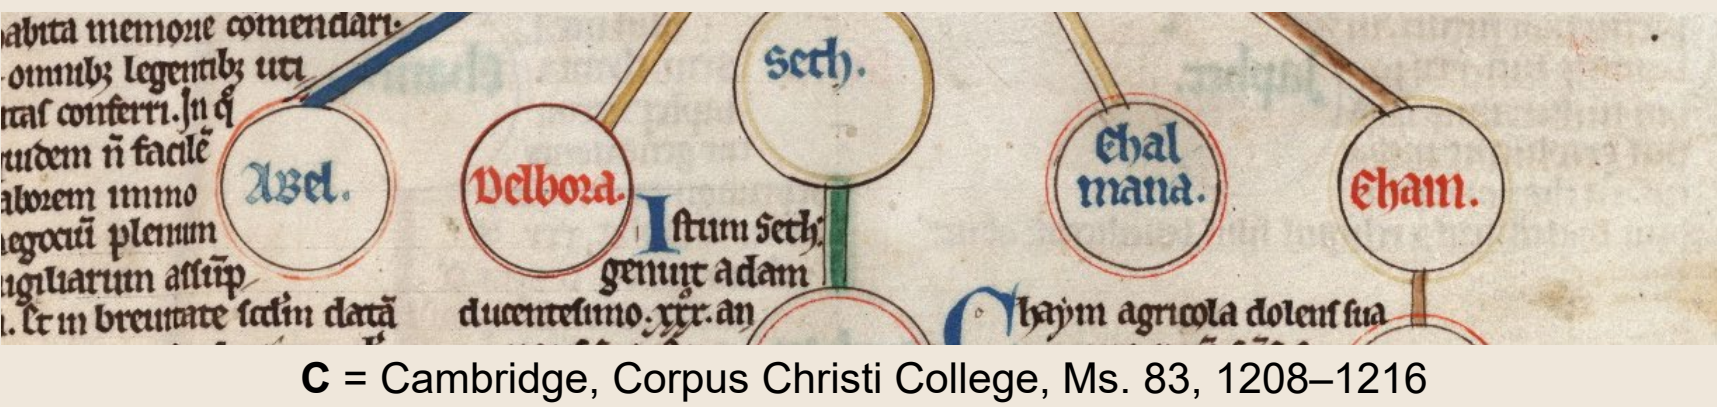 abita memorie comendari.
omnibꝫ legentibꝫ uti
conferri. In q̊
uidem n̄ facile
laborem immo
negociū plenum
uigiliarum assūp
Et in breuitate datā
Abel.
Delbora.
Seth.
Istum Seth
genuit adam
ducentesimo. xxx̊. an
Chal
mana.
Cham.
Chaym agricola dolens sua
C = Cambridge, Corpus Christi College, Ms. 83, 1208–1216